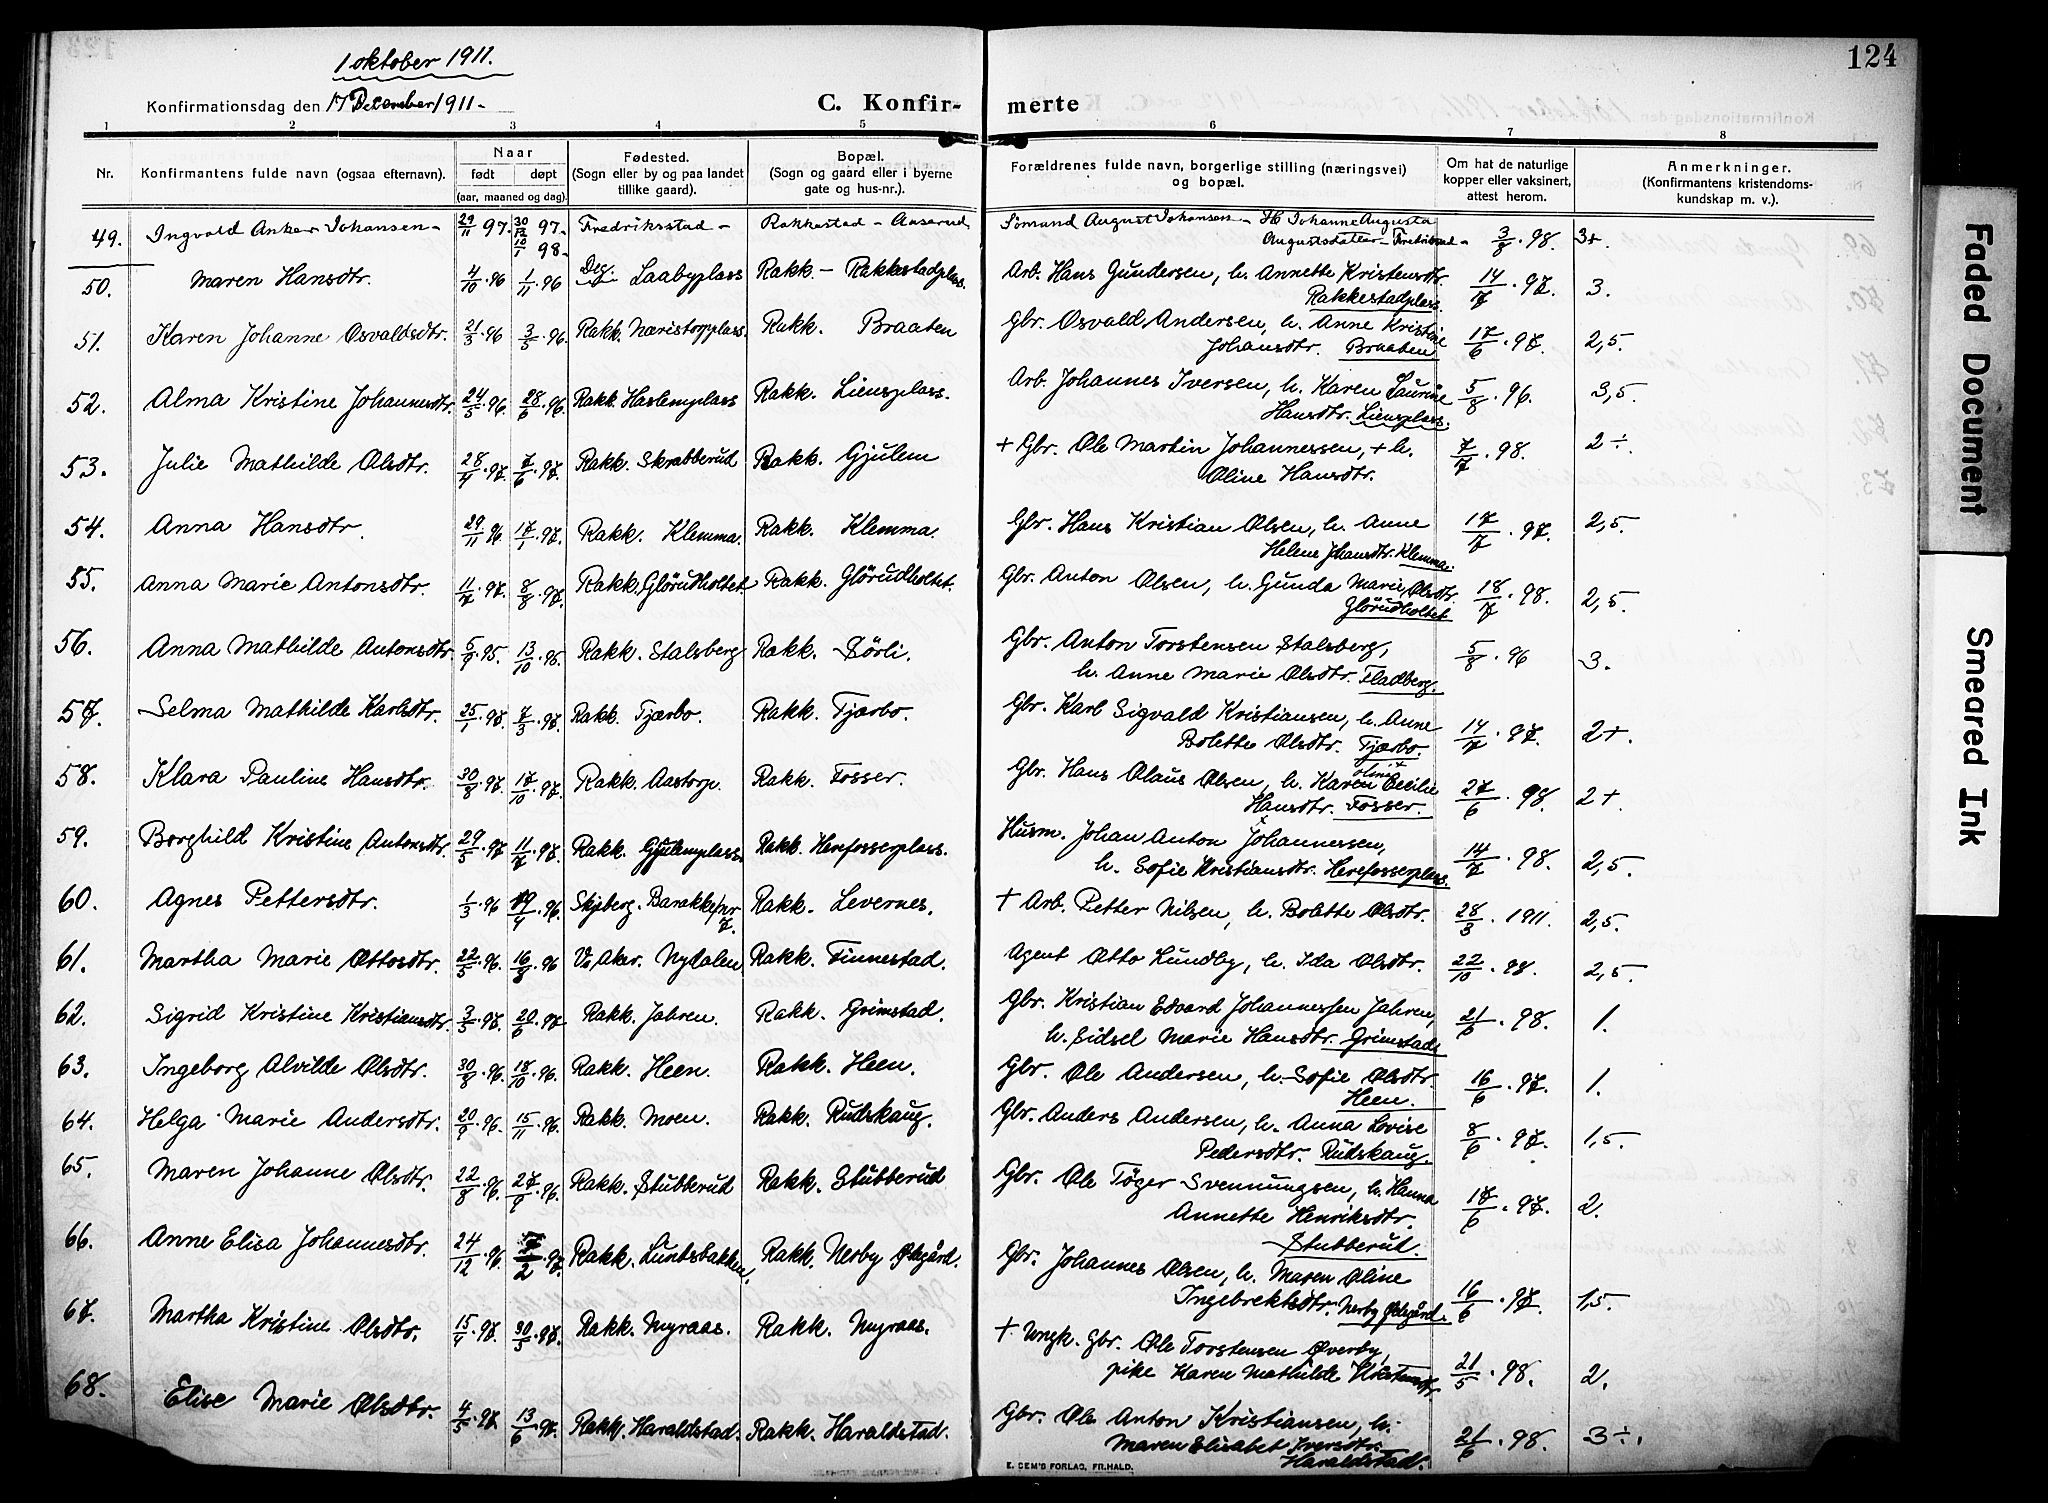 124
1 oktober 1911.
Konfirmationsdag den 17 Dezember 1911.-
C. Konfir- merte
1 2 3 4 5 6 7 8
Nr.
Konfirmantens fulde navn (ogsaa efternavn).
Naar
født døpt
(aar, maaned og dag).
Fødested.
(Sogn eller by og paa landet
tillike gaard).
Bopæl.
(Sogn og gaard eller i byerne
gate og hus-nr.).
Forældrenes fulde navn, borgerlige stilling (næringsvei)
og bopæl.
Om hat de naturlige
kopper eller vaksinert,
attest herom.
Anmerkninger.
(Konfirmantens kristendoms-
kundskap m. v.).
49. Ingvald Anker Johansen - 29/11 97. 30/12 97- 10/1 98- Fredriksstad - Rakkestad - Aaserud Sømund August Johansen - H. Johanne Augusta
Augustsdatter - Fredriksstad - 3/8. 98. 3+.
50. Maren Hansdtr. 4/10. 96 1/11. 96 Deg. Laabyplass Rakk. - Rakkestadplass. Arb. Hans Gundersen, h. Annette Kristensdtr.
Rakkestadplass. 14/7. 97. 3.
51. Karen Johanne Osvaldsdtr. 21/3. 96 3/5. 96. Rakk. Næristorpplass. Rakk. Braaten Gbr. Osvald Andersen, h. Anne Kristine
Johansdtr. Braaten 17/6. 97. 2,5.
52. Alma Kristine Johannesdtr. 24/5. 96. 28/6. 96. Rakk. Haslemplass Rakk. Liensplass. Arb. Johannes Iversen, h. Karen Laurine
Hansdtr. Liensplass. 5/8. 96. 3,5.
53. Julie Mathilde Olsdtr. 28/4. 97. 7/6. 97. Rakk. Skrabberud Rakk. Gjulem + Gbr. Ole Martin Johannessen, + h.
Oline Hansdtr. 7/7. 98. 2÷.
54. Anna Hansdtr. 29/11. 96 17/1. 97. Rakk. Klemma. Rakk. Klemma. Gbr. Hans Kristian Olsen, h. Anne
Helene Johansdtr. Klemma. 17/7. 97. 2,5.
55. Anna Marie Antonsdtr. 11/7. 97. 8/8. 97. Rakk. Glörudholtet Rakk. Glörudholtet. Gbr. Anton Olsen, h. Gunda Marie Olsdtr.
Glörudholtet 18/7. 98. 2,5.
56. Anna Mathilde Antonsdtr. 5/9. 95. 13/10. 95. Rakk. Stalsberg Rakk. Sörli. Gbr. Anton Torstensen Stalsberg,
h. Anne Marie Olsdtr. Fladberg. 5/8. 96 3.
57. Selma Mathilde Karlsdtr. 25/1. 97. 7/3. 97. Rakk. Tjærbo. Rakk. Tjærbo. Gbr. Karl Sigvald Kristiansen, h. Anne
Bolette Olsdtr. Tjærbo. 14/7. 97. 2+.
58. Klara Pauline Hansdtr. 30/8. 97. 17/10. 97. Rakk. Aastorp. Rakk. Fosser. Gbr. Hans Olaus Olsen, h. Karen Cecilie
Oline
Hansdtr. Fosser. 27/6. 98. 2+.
59. Borghild Kristine Antonsdtr. 29/5. 97 11/7. 97. Rakk. Gjulemplass. Rakk. Herefosserplass. Husm. Johan Anton Johannessen,
h. Sofie Kristiansdtr. Herefosserplass. 14/7. 98. 2,5.
60. Agnes Pettersdtr. 1/3. 96 19/4. 96. Skjeberg. Barakke nr 7. Rakk. Levernes. + Arb. Petter Nilsen, h. Bolette Olsdtr. 28/3. 1911. 2,5.
61. Martha Marie Ottosdtr. 22/5. 96. 16/8. 96 V. Aker. Nydalen Rakk. Finnestad. Agent Otto Lundby, h. Ida Olsdtr. 22/10. 98. 2,5.
62. Sigrid Kristine Kristiansdtr. 3/5. 97. 20/6. 97 Rakk. Jahren. Rakk. Grimstad. Gbr. Kristian Edvard Johannessen Jahren,
h. Sidsel Marie Hansdtr. Grimstad. 21/6. 98. 1.
63. Ingeborg Alvilde Olsdtr. 30/8. 96. 18/10. 96. Rakk. Heen. Rakk. Heen. Gbr. Ole Andersen, h. Sofie Olsdtr.
Heen. 16/6. 97. 1.
64. Helga Marie Andersdtr. 20/9. 96. 15/11. 96. Rakk. Moen. Rakk. Rudskaug. Gbr. Anders Andersen, h. Anna Lovise
Pedersdtr. Rudskaug. 8/6. 97. 1,5.
65. Maren Johanne Olsdtr. 22/8. 96. 27/9. 96. Rakk. Stubberud Rakk. Stubberud Gbr. Ole Töger Svennungsen, h. Hanna
Annette Henriksdtr.
Stubberud. 17/6. 97. 2.
66. Anne Elisa Johannesdtr. 24/12. 96. 7/2. 97. Rakk. Luntsbakken. Rakk. Nerby Ødegård. Gbr. Johannes Olsen, h. Maren Oline
Ingebrektsdtr. Nerby Ødegård. 16/6. 97. 1,5.
67. Martha Kristine Olsdtr. 15/4. 97. 30/5. 97. Rakk. Nyraas. Rakk. Nyraas. + Ungk. Gbr. Ole Torstensen Øverby,
pike Karen Mathilde 21/5. 98. 2.
68. Elise Marie Olsdtr. 4/5. 97. 13/6. 97. Rakk. Haraldstad. Rakk. Haraldstad. Gbr. Ole Anton Kristiansen, h.
Maren Elisabet Iversdtr.
Haraldstad. 21/6. 98. 3÷.
E. SEM'S FORLAG, FR.HALD.
Faded Document
Smeared Ink